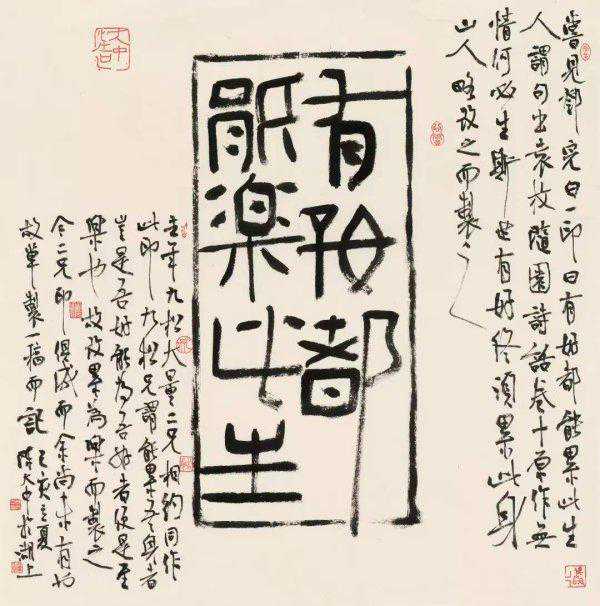 嘗見鄧完白一印曰有好都能累此生
人謂句出袁枚隨園詩話卷十原作無
情何必生斯世有好終須累此身
山人略改之而製之
有好都
能樂此生
去年九松大量二兄相約同作
此印九松兄謂能累吾身者
豈是吾好能為吾好者是至
樂也故改累為樂而製之
今二兄印俱成而余尚未有
故草製一稿而記 己亥立夏
陳大中於湖上